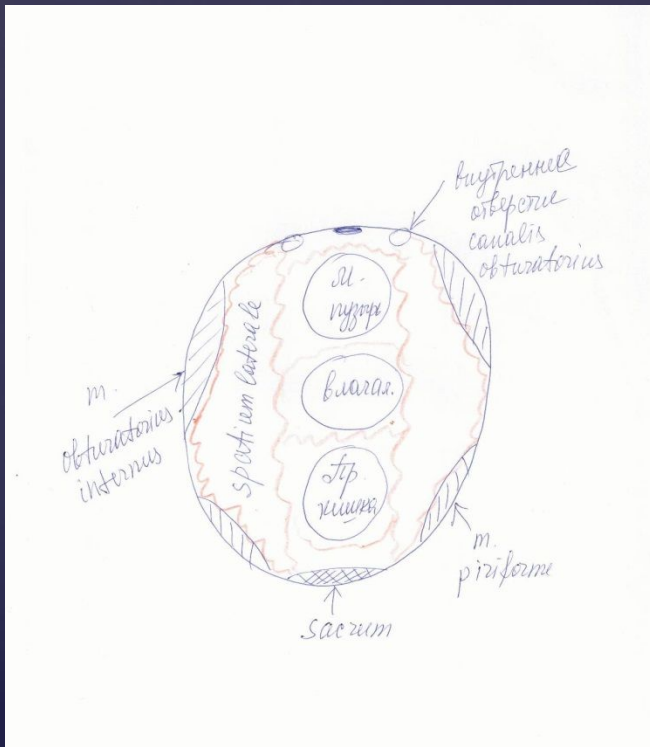 внутреннее
отверстие
canalis
obturatorius
М.
пузырь
влагал.
Пр.
кишка
spatium laterale
m.
obturatorius
internus
m.
piriforme
sacrum